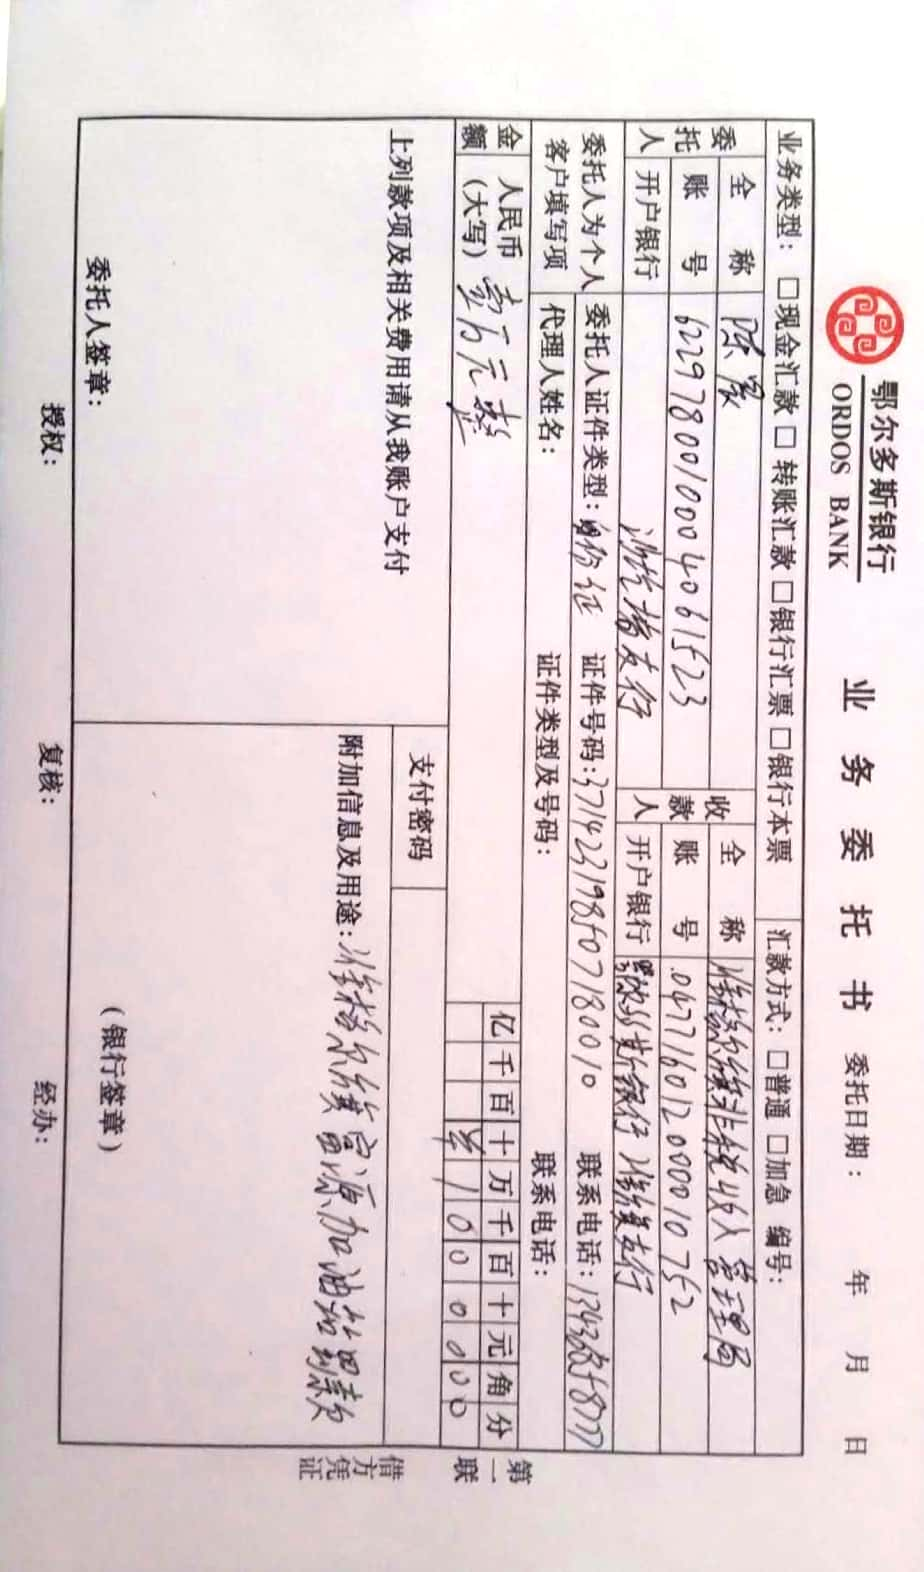 鄂尔多斯银行
ORDOS BANK
业务委托书
委托日期： 年 月 日
业务类型：□现金汇款 □转账汇款 □银行汇票 □银行本票
汇款方式：□普通 □加急 编号：
委托人
全称
陈
账号 6229780010004061523
开户银行 支行
收款人
全称 准格尔旗非税收入管理局
账号 047716012000010752
开户银行 鄂尔多斯银行准旗支行
委托人为个人客户填写项
委托人证件类型：身份证 证件号码：371423198507180010 联系电话：
代理人姓名： 证件类型及号码： 联系电话：
金额 人民币（大写） 壹万元整
亿千百十万千百十元角分
¥1000000
上列款项及相关费用请从我账户支付
支付密码
附加信息及用途：准格尔旗富源加油站罚款
委托人签章：
（银行签章）
授权： 复核： 经办：
第一联 借方凭证